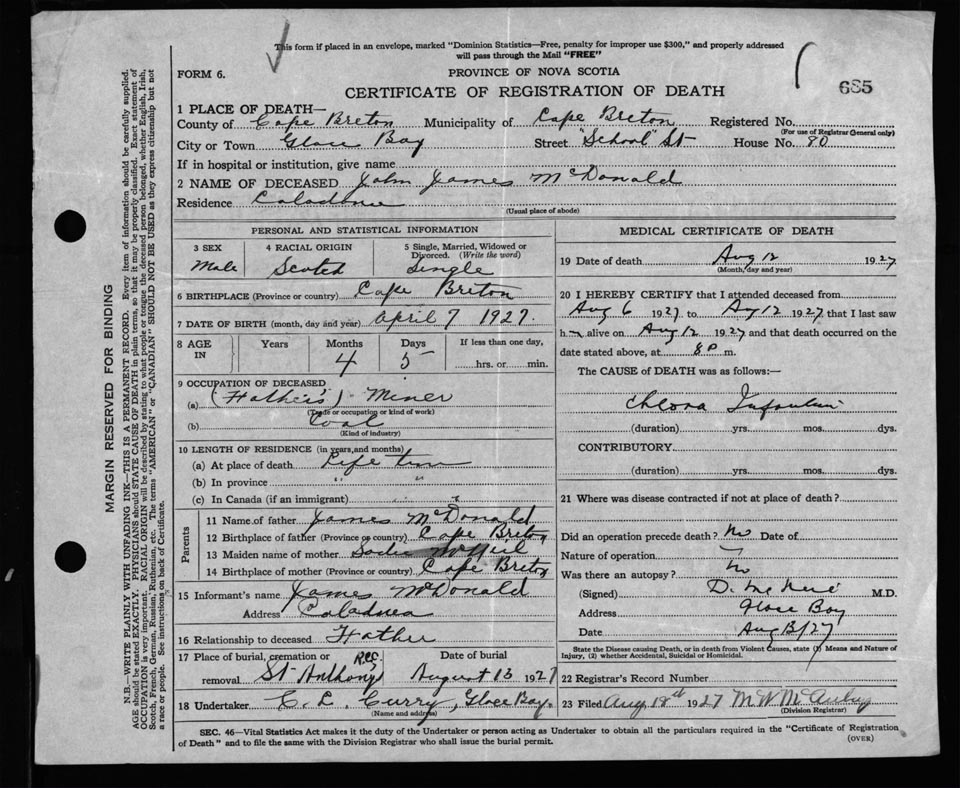 This form if placed in an envelope, marked "Dominion Statistics—Free, penalty for improper use $300," and properly addressed
will pass through the Mail "FREE"
FORM 6.
PROVINCE OF NOVA SCOTIA
685
CERTIFICATE OF REGISTRATION OF DEATH
1 PLACE OF DEATH—
County of Cape Breton Municipality of Cape Breton Registered No.
(For use of Registrar General only)
City or Town Glace Bay Street "School" St House No. 80
If in hospital or institution, give name
2 NAME OF DECEASED John James McDonald
Residence
(Usual place of abode)
PERSONAL AND STATISTICAL INFORMATION
3 SEX 4 RACIAL ORIGIN 5 Single, Married, Widowed or
Divorced. (Write the word)
Male Scotch Single
6 BIRTHPLACE (Province or country) Cape Breton
7 DATE OF BIRTH (month, day and year) April 7 1927.
8 AGE IN Years Months Days If less than one day,
4 5 hrs. or min.
9 OCCUPATION OF DECEASED
(a) (Father's) Miner
(Trade or occupation or kind of work)
(b) Coal
(Kind of industry)
10 LENGTH OF RESIDENCE (in years and months)
(a) At place of death Life time
(b) In province " "
(c) In Canada (if an immigrant) " "
Parents
11 Name of father James McDonald
12 Birthplace of father (Province or country) Cape Breton
13 Maiden name of mother Sadie McNeil
14 Birthplace of mother (Province or country) Cape Breton
15 Informant's name James McDonald
Address
16 Relationship to deceased Father
17 Place of burial, cremation or removal St Anthony R.C. Date of burial August 13 1927
18 Undertaker C. L. Curry, Glace Bay.
(Name and address)
MEDICAL CERTIFICATE OF DEATH
19 Date of death Aug 12 1927
(Month, day and year)
20 I HEREBY CERTIFY that I attended deceased from
Aug 6 1927 to Aug 12 1927 that I last saw
h alive on Aug 12 1927 and that death occurred on the
date stated above, at 8 p m.
The CAUSE OF DEATH was as follows:—
(duration) yrs. mos. dys.
CONTRIBUTORY.
(duration) yrs. mos. dys.
21 Where was disease contracted if not at place of death?
Did an operation precede death? No Date of
Nature of operation
Was there an autopsy? No
(Signed) D. M.D.
Address Glace Bay
Date Aug 13/27
State the Disease causing Death, or in death from Violent Causes, state (1) Means and Nature of
Injury, (2) whether Accidental, Suicidal or Homicidal.
22 Registrar's Record Number
23 Filed Aug 18th 1927
(Division Registrar)
SEC. 46—Vital Statistics Act makes it the duty of the Undertaker or person acting as Undertaker to obtain all the particulars required in the "Certificate of Registration
of Death" and to file the same with the Division Registrar who shall issue the burial permit.
(OVER)
MARGIN RESERVED FOR BINDING
N.B.—WRITE PLAINLY WITH UNFADING INK—THIS IS A PERMANENT RECORD. Every item of information should be carefully supplied.
AGE should be stated EXACTLY. PHYSICIANS should STATE CAUSE OF DEATH in plain terms, so that it may be properly classified. Exact statement of
OCCUPATION is very important. RACIAL ORIGIN will be described by stating to what people or tongue the deceased person belonged, whether English, Irish,
Scotch, French, German, Russian, Ruthenian, etc. The terms "AMERICAN" or "CANADIAN" SHOULD NOT BE USED as they express citizenship but not
a race or people. See instructions on back of Certificate.